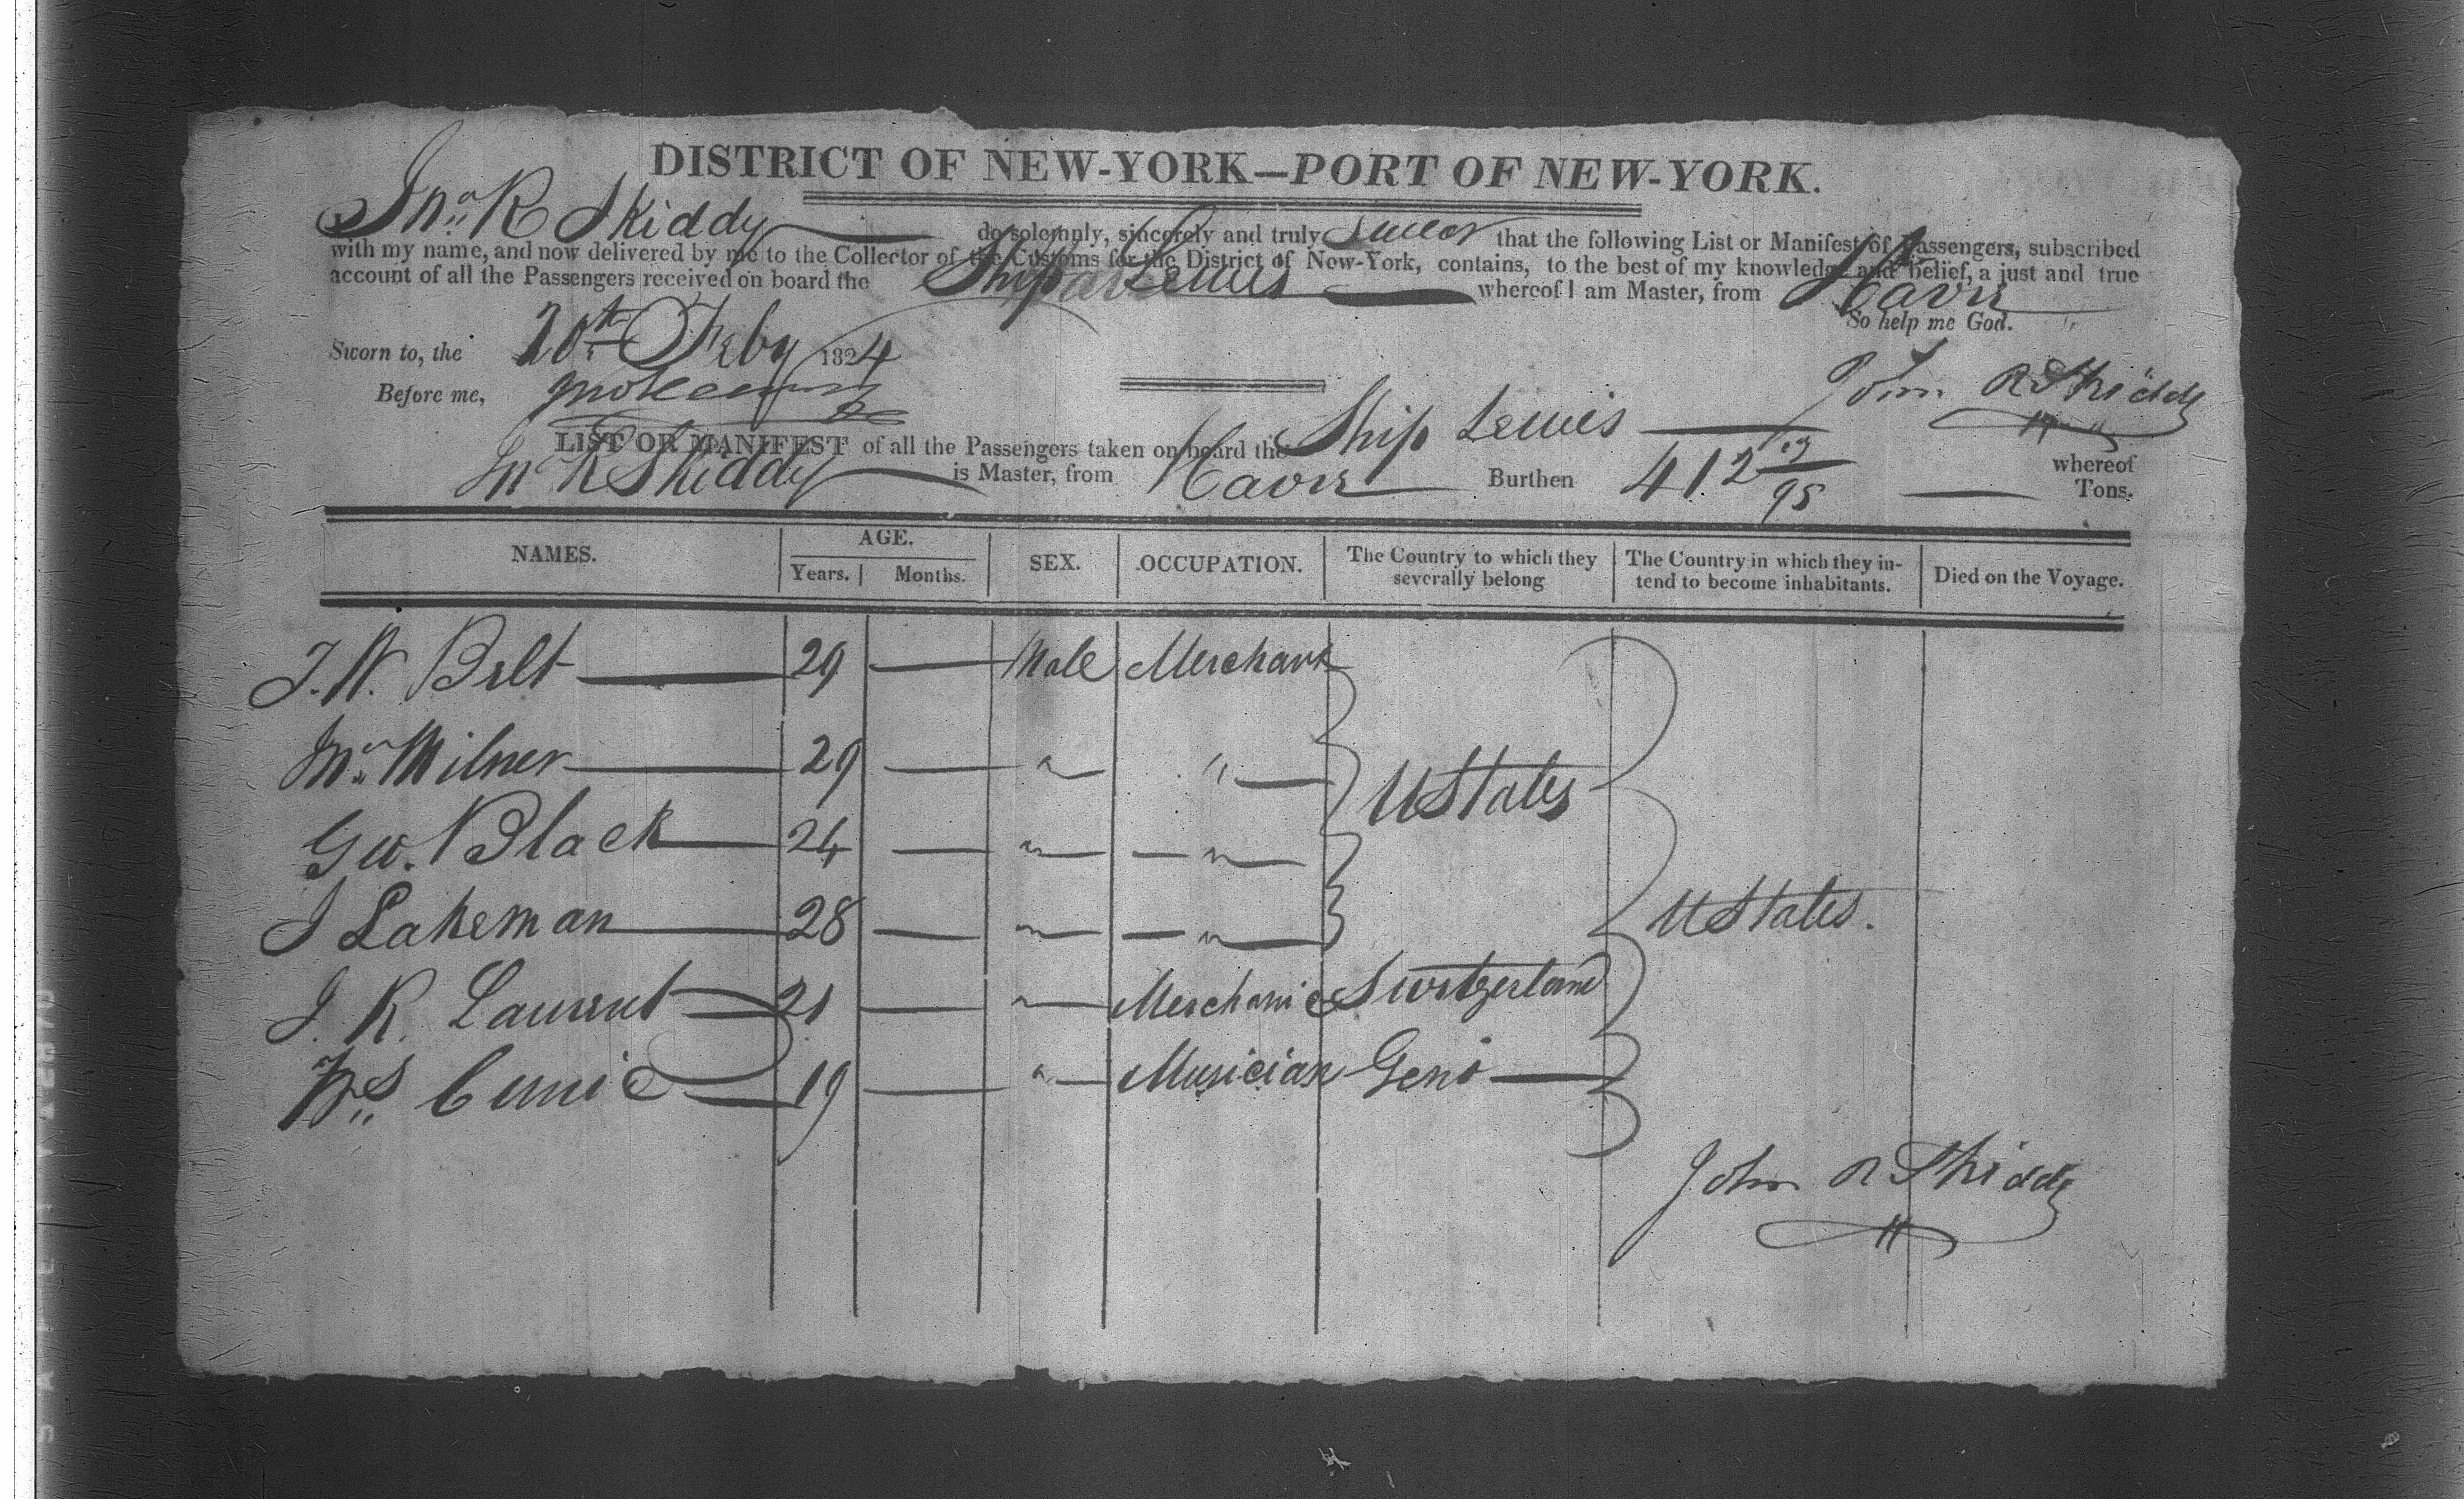 DISTRICT OF NEW-YORK—PORT OF NEW-YORK.
I Jno. R Skiddy do solemnly, sincerely and truly Swear that the following List or Manifest of Passengers, subscribed
with my name, and now delivered by me to the Collector of the Customs for the District of New-York, contains, to the best of my knowledge and belief, a just and true
account of all the Passengers received on board the Ship Lewis whereof I am Master, from Havre
So help me God.
Sworn to, the 20th Feby 1824
Before me,
John R Skiddy
LIST OR MANIFEST of all the Passengers taken on board the Ship Lewis whereof
Jno R Skiddy is Master, from Havre Burthen 412 /95 Tons.
NAMES. AGE. Years. Months. SEX. OCCUPATION. The Country to which they severally belong The Country in which they intend to become inhabitants. Died on the Voyage.
J. W. Belt 29 — Male Merchant
Jno. Milner 29 — " " U States
Geo. Black 24 — " "
J Lakeman 28 — " " U States.
J. R. Laurent 21 — " Merchanic Switzerland
19 — " Musician Geno
John R Skiddy